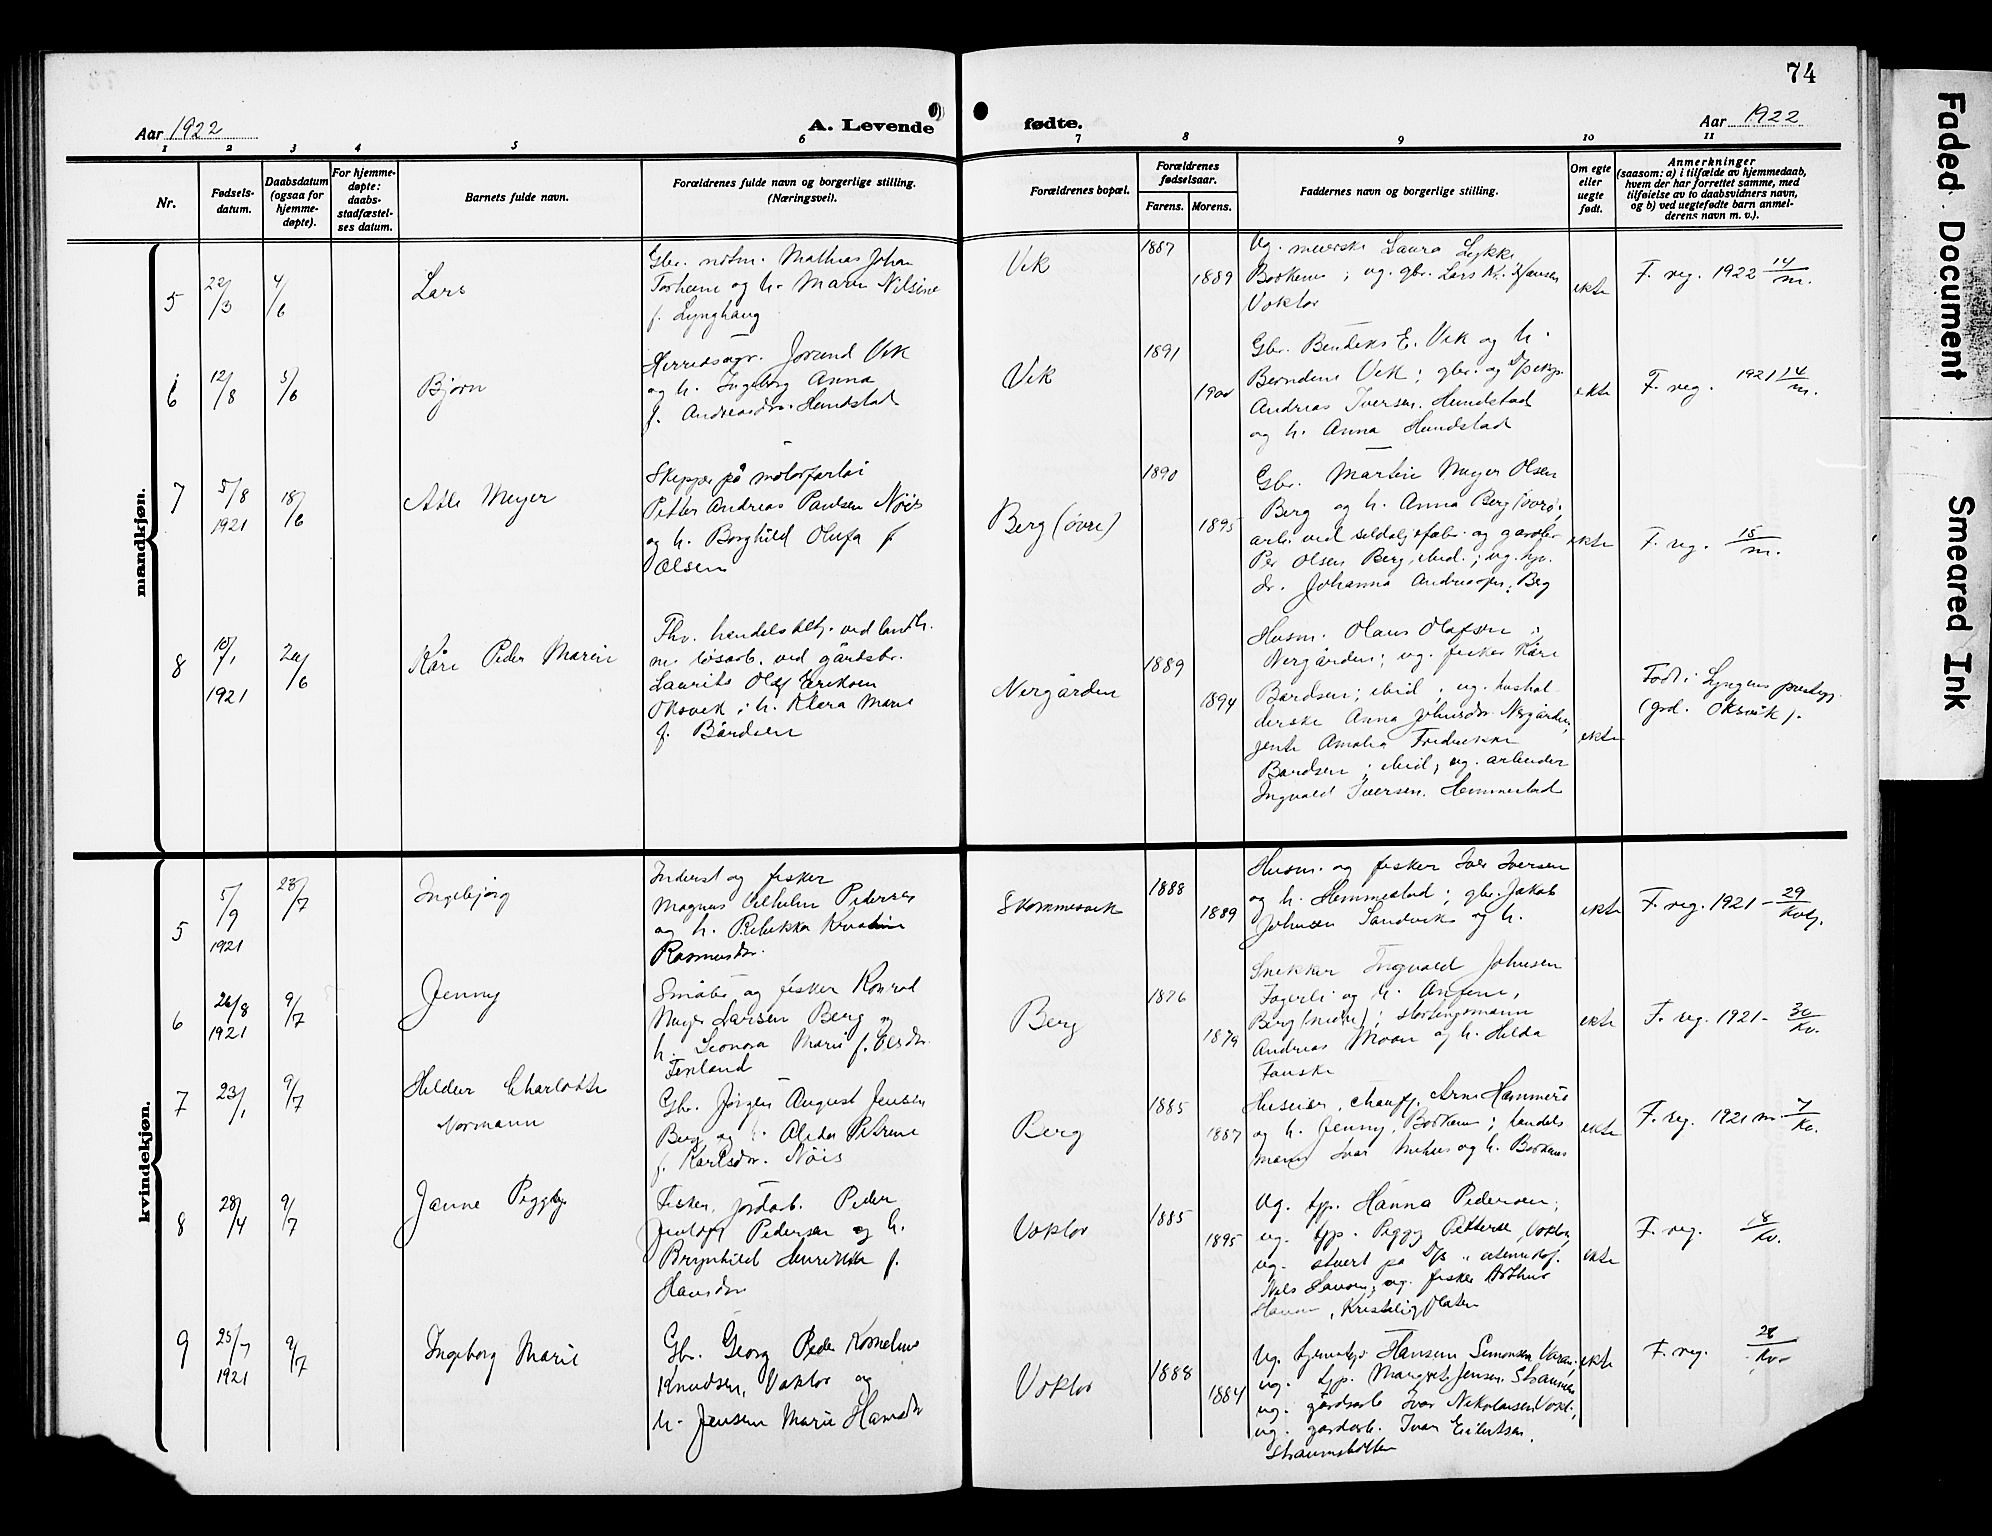 74
Aar 1922
A. Levende
fødte.
Aar 1922
1 2 3 4 5 6 7 8 9 10 11
Nr.
Fødsels-
datum.
Daabsdatum
(ogsaa for
hjemme-
døpte).
For hjemme-
døpte:
daabs-
stadfæstel-
ses datum.
Barnets fulde navn.
Forældrenes fulde navn og borgerlige stilling.
(Næringsvei).
Forældrenes bopæl.
Forældrenes
fødselsaar.
Farens. Morens.
Faddernes navn og borgerlige stilling.
Om egte
eller
uegte
født.
Anmerkninger
(saasom: a) i tilfælde av hjemmedaab,
hvem der har forrettet samme, med
tilføielse av to daabsvidners navn,
og b) ved uegtefødte barn anmel-
derens navn m. v.).
mandkjøn.
5
22/3
4/6
Lars
Mathias Johan
og h. Maren Nilsine
f. Lynghaug
Vik
1887
1889
Ug. meierske Laura Lykke
Borkenes; ug. gbr. Lars N. Hansen
Voktor
ekte
F. reg. 1922 14/m.
6
12/8
5/6
Bjørn
Herredsagr. Jørund Vik
og h. Ingeborg Anna
f. Andreasdr. Hundstad
Vik
1891
1900
Gbr. Bendiks E. Vik og h.
Berndine Vik; gbr. og
Andreas Iversen Hundstad
og h. Anna Hundstad
ekte
F. reg. 1921 14/m.
7
5/8
1921
18/6
Atle Meyer
Skipper på motorfartøi
Petter Andreas Paulsen Nöis
og h. Borghild Olufa f.
Olsen
Berg (övre)
1890
1895
Gbr. Martin Meyer Olsen
Berg og h. Anna Berg (övre),
arb. ved sildoljefabr. og gårdbr.
Per Olsen Berg, ibid.; ug. hp.
Johanna Berg
ekte
F. reg. 15/m.
8
10/1
1921
24/6
Kåre Peder Marin
Fhv. handelsbetj. ved landh.
nu løsarb. ved gårdsbr.
Laurits Olaf Eriksen
Oksvik; h. Klara Marie
f. Bårdsen
Nergården
1889
1894
Husm. Olaus Olafsen
Nergården; ug. fisker Kåre
Bårdsen; ibid; ug. hushol-
derske Anna Johnsdr. Nergården,
jente Amalia Fredrikke
Bårdsen; ibid; ug. arbeider
Ingvald Iversen. Hemmestad
ekte
Født i Lyngen prestegj.
(grd. Oksvik).
kvindekjøn.
5
5/9
1921
23/7
Ingebjørg
Inderst og fisker
Magnus Vilhelm Pedersen
og h. Rebekka Kristine
Rasmusdr.
Skommesvik
1888
1889
Husm. og fisker Iver Iversen
og h. Hemmestad; gbr. Jakob
Johnsen Sandvik og h.
ekte
F. reg. 1921 - 29/kvkj.
6
26/8
1921
9/7
Jenny
Småbr. og fisker Konrad
Meyer Larsen Berg og
h. Leonora Marie f. Olsdr.
Finland
Berg
1876
1879
Snekker Ingvald Johnsen
Fagerli og h. Anfine,
Berg (nedre); stortingsmann
Andreas Moan og h. Hilda
Fauske
ekte
F. reg. 1921 - 30/kv.
7
23/1
9/7
Hildur Charlotte
Normann
Gbr. Jörgen August Jensen
Berg og h. Alida Petrine
f. Karlsdr. Nöis
Berg
1885
1887
Huseier, chauff. Arne Hammerö
og h. Jenny, Borkenes; handels
mann Ivar og h. Borkenes
ekte
F. reg. 1921 m. 7/kv.
8
28/4
9/7
Janne Peggy
Fisker, jordarb. Peder
Pedersen og h.
Brynhild Henrikke f.
Hansdr.
Voktor
1885
1895
Ug. tjp. Hanna Pedersen;
ug. tjp. Peggy Voktor,
ug. stuert på D/S
Nils ug. fisker Arthur
Hansen, Kristelig
ekte
F. reg. 8/kv.
9
25/7
1921
9/7
Ingeborg Marie
Gbr. Georg Peder Kornelius
Knudsen, Voktor og
h. Jensen Marie Hansdr.
Voktor
1888
1884
Ug. Hansen Simonsen
ug. tjp. Margret Jensen
ug. gårdsarb. Ivar Nikolaisen Vokt.,
ug. gardarb. Ivar Eilertsen,
Straumsbotten
ekte
F. reg. 28/kv.
Faded Document
Smeared Ink